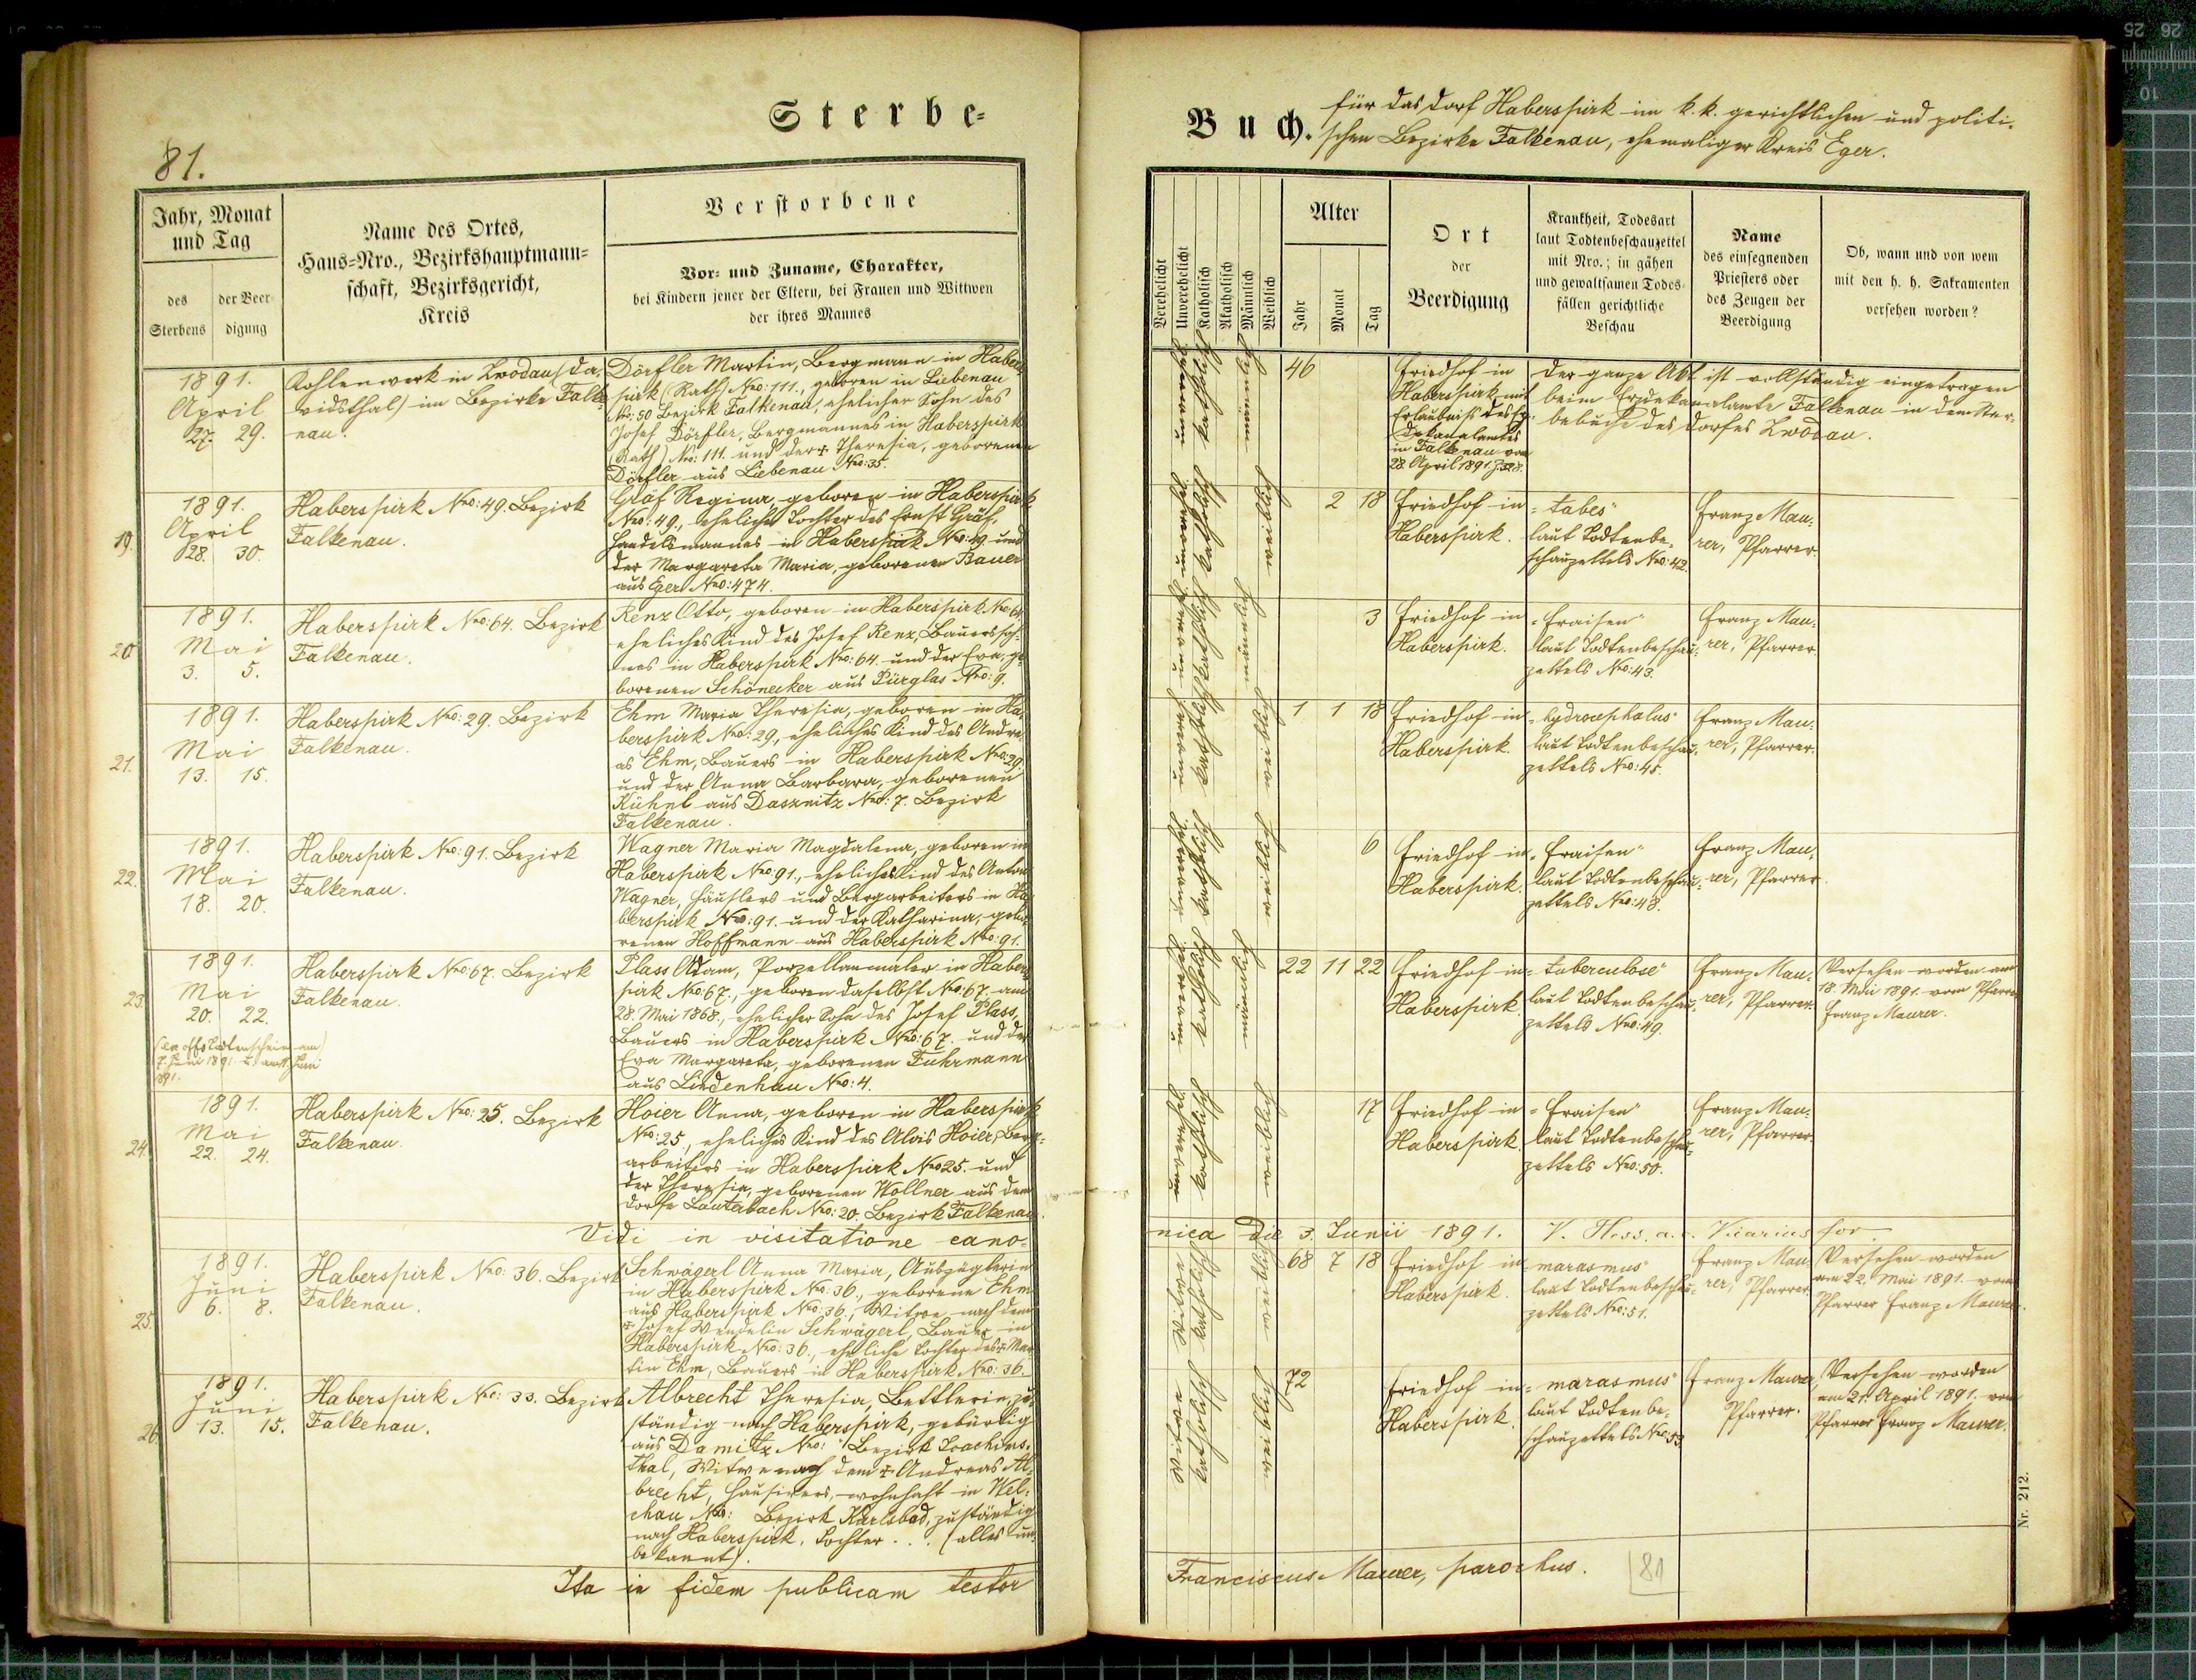 Sterbe-
81.
Jahr, Monat
und Tag
des
Sterbens
der Beer-
digung
Name des Ortes,
Haus-Nro., Bezirkshauptmann-
schaft, Bezirksgericht,
Kreis
Verstorbene
Vor- und Zuname, Charakter,
bei Kindern jener der Eltern, bei Frauen und Wittwen
der ihres Mannes
1891.
April
27. 29.
Kohlenwerk in Zwodau (Da-
vidsthal) im Bezirke Falke-
nau.
Dörfler Martin, Bergmann in Habers-
pirk (Rath) Nro: 111., geboren in Liebenau
Nro: 50 Bezirk Falkenau, ehelicher Sohn des
Josef Dörfler, Bergmannes in Haberspirk
(Rath) Nro: 111. und der † Theresia, geborenen
Dörfler aus Liebenau Nro: 35.
19.
1891.
April
28. 30.
Haberspirk Nro: 49. Bezirk
Falkenau.
Gräf Regina, geboren in Haberspirk
Nro: 49., eheliche Tochter des Ernst Gräf,
Handelsmannes in Haberspirk Nro: 49 und
der Margareta Maria, geborenen Bauer
aus Eger Nro: 474.
20.
1891.
Mai
3. 5.
Haberspirk Nro: 64. Bezirk
Falkenau.
Renz Otto, geboren in Haberspirk Nro 64.
eheliches Kind des Josef Renz, Bauerssoh-
nes in Haberspirk Nro: 64. und der Eva, ge-
borenen Schönecker aus Pürglas Nro: 9.
21.
1891.
Mai
13. 15.
Haberspirk Nro: 29. Bezirk
Falkenau.
Ehm Maria Theresia, geboren in Ha-
berspirk Nro: 29, eheliches Kind des Andre-
as Ehm, Bauers in Haberspirk Nro: 29.
und der Anna Barbara, geborenen
Kühnl aus Dasznitz Nro: 7. Bezirk
Falkenau.
22.
1891.
Mai
18. 20.
Haberspirk Nro: 91. Bezirk
Falkenau.
Wagner Maria Magdalena, geboren in
Haberspirk Nro: 91., eheliches Kind des Anton
Wagner, Häuslers und Bergarbeiters in Ha-
berspirk Nro: 91. und der Katharina, gebo-
renen Hoffmann aus Haberspirk Nro: 91.
23.
1891.
Mai
20. 22.
Haberspirk Nro: 67. Bezirk
Falkenau.
Plass Adam, Porzellanmaler in Habers-
pirk Nro: 67., geboren daselbst Nro: 67. am
28. Mai 1868., ehelicher Sohn des Josef Plass,
Bauers in Haberspirk Nro: 67. und der
Eva Margareta, geborenen Fuhrmann
aus Lindenhau Nro: 4.
24.
1891.
Mai
22. 24.
Haberspirk Nro: 25. Bezirk
Falkenau.
Hoier Anna, geboren in Haberspirk
Nro: 25, eheliches Kind des Alois Hoier, Berg-
arbeiters in Haberspirk Nro 25. und
der Theresia, geborenen Wollner aus dem
Dorfe Lauterbach Nro: 20. Bezirk Falkenau.
Vidi in visitatione cano-
25.
1891.
Juni
6. 8.
Haberspirk Nro: 36. Bezirk
Falkenau.
Schwägerl Anna Maria, Auszüglerin
in Haberspirk Nro: 36., geborene Ehm
aus Haberspirk Nro: 36, Witwe nach dem
† Josef Wendelin Schwägerl, Bauer in
Haberspirk Nro: 36., eheliche Tochter des † Mar-
tin Ehm, Bauers in Haberspirk Nro: 36.
26.
1891.
Juni
13. 15.
Haberspirk Nro: 33. Bezirk
Falkenau.
Albrecht Theresia, Bettlerin, zu-
ständig nach Haberspirk, gebürtig
aus Damitz Nro: Bezirk Joachims-
thal, Witwe nach dem † Andreas Al-
brecht, Hausirers, wohnhaft in Wel-
chau Nro: Bezirk Karlsbad, zuständig
nach Haberspirk, Tochter . . . (alles un-
bekannt).
Ita in fidem publicam testor
Buch.
für das Dorf Haberspirk im k. k. gerichtlichen und politi-
schen Bezirke Falkenau, ehemaliger Kreis Eger.
Verehelicht
Unverehelicht
Katholisch
Akatholisch
Männlich
Weiblich
Alter
Jahr
Monat
Tag
Ort
der
Beerdigung
Krankheit, Todesart
laut Todtenbeschauzettel
mit Nro.; in gähen
und gewaltsamen Todes-
fällen gerichtliche
Beschau
Name
des einsegnenden
Priesters oder
des Zeugen der
Beerdigung
Ob, wann und von wem
mit den h. h. Sakramenten
versehen worden?
unvereheл.
katholisch
männlich
46
Friedhof in
Haberspirk mit
Erlaubniß des Erz-
dekanalamtes
in Falkenau vom
28. April 1891.
Der ganze Akt ist vollständig eingetragen
beim Erzdekanalamte Falkenau in dem Ster-
bebuche des Dorfes Zwodau.
unverehel.
katholisch
weiblich
2 18
Friedhof in
Haberspirk.
"tabes"
laut Todtenbe-
schauzettels Nro: 42.
Franz Mau-
rer, Pfarrer
unverehel.
katholisch
männlich
3
Friedhof in
Haberspirk.
"Fraisen"
laut Todtenbeschau-
zettels Nro: 43.
Franz Mau-
rer, Pfarrer
unverehel.
katholisch
weiblich
1 1 18
Friedhof in
Haberspirk.
"hydrocephalus"
laut Todtenbeschau-
zettels Nro: 45.
Franz Mau-
rer, Pfarrer.
unverehel.
katholisch
weiblich
6
Friedhof in
Haberspirk.
"Fraisen"
laut Todtenbeschau-
zettels Nro: 48.
Franz Mau-
rer, Pfarrer.
unverehel.
katholisch
männlich
22 11 22
Friedhof in
Haberspirk.
"tuberculose"
laut Todtenbeschau-
zettels Nro: 49.
Franz Mau-
rer, Pfarrer.
Versehen worden am
18. Mai 1891. vom Pfarrer
Franz Maurer.
unverehel.
katholisch
weiblich
17
Friedhof in
Haberspirk.
"Fraisen"
laut Todtenbeschau-
zettels Nro: 50.
Franz Mau-
rer, Pfarrer.
nica die 3. Junii 1891. V. Hess. Vicarius for.
Witwe
katholisch
weiblich
68 7 18
Friedhof in
Haberspirk.
"marasmus"
laut Todtenbeschau-
zettels Nro: 51.
Franz Mau-
rer, Pfarrer.
Versehen worden
am 22. Mai 1891. vom
Pfarrer Franz Maurer.
Witwe
katholisch
weiblich
72
Friedhof in
Haberspirk.
"marasmus"
laut Todtenbe-
schauzettels Nro: 53
Franz Maurer,
Pfarrer.
Versehen worden
am 21. April 1891. vom
Pfarrer Franz Maurer.
Franciscus Maurer, parochus.
81
Nr. 212.